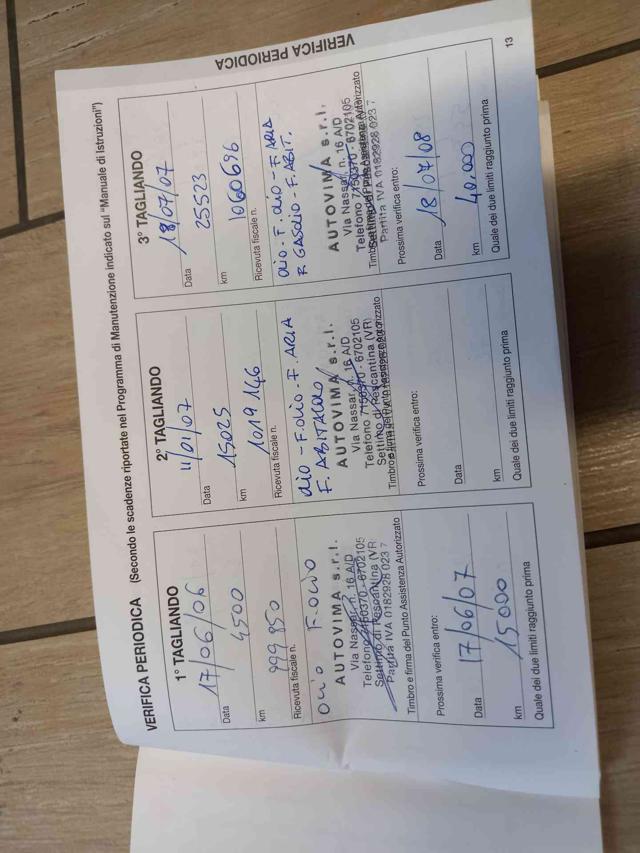 VERIFICA PERIODICA (Secondo le scadenze riportate nel Programma di Manutenzione indicato sul "Manuale di Istruzioni")
1° TAGLIANDO
17/06/06
Data
4500
km
999 850
Ricevuta fiscale n.
OLIO F.OLIO
AUTOVIMA s.r.l.
Via Nassar, n. 16 A/D
Telefono 7150370 - 6702105
Settimo di Pescantina (VR)
Partita IVA 0182928 023 7
Timbro e firma del Punto Assistenza Autorizzato
Prossima verifica entro:
17/06/07
Data
15000
km
Quale dei due limiti raggiunto prima
2° TAGLIANDO
11/01/07
Data
15025
km
1019 146
Ricevuta fiscale n.
OLIO - F.OLIO - F. ARIA
F. ABITACOLO
AUTOVIMA s.r.l.
Via Nassar, n. 16 A/D
Telefono 7150370 - 6702105
Settimo di Pescantina (VR)
Timbro e firma del Punto Assistenza Autorizzato
Prossima verifica entro:
Data
km
Quale dei due limiti raggiunto prima
3° TAGLIANDO
18/07/07
Data
25523
km
1060696
Ricevuta fiscale n.
OLIO - F. OLIO - F. ARIA
F. GASOLIO - F. ABIT.
AUTOVIMA s.r.l.
Via Nassar, n. 16 A/D
Telefono 7150370 - 6702105
Partita IVA 0182928 023 7
Prossima verifica entro:
18/07/08
Data
40.000
km
Quale dei due limiti raggiunto prima
VERIFICA PERIODICA
13